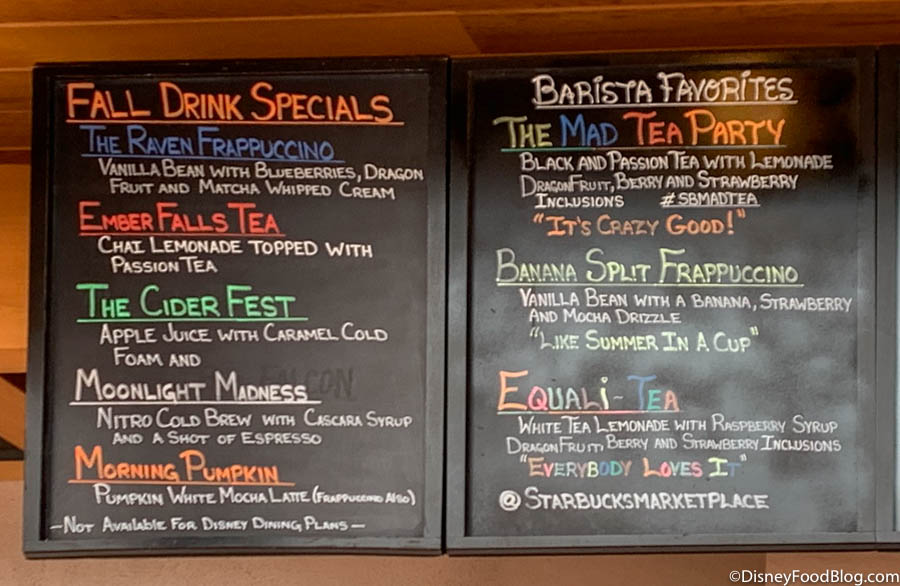 Fall Drink Specials
The Raven Frappuccino
Vanilla Bean with Blueberries, Dragon
Fruit and Matcha Whipped Cream
Ember Falls Tea
Chai Lemonade topped with
Passion Tea
The Cider Fest
Apple Juice with Caramel Cold
Foam and
Moonlight Madness
Nitro Cold Brew with Cascara Syrup
and a Shot of Espresso
Morning Pumpkin
Pumpkin White Mocha Latte (Frappuccino Also)
-Not Available For Disney Dining Plans-
Barista Favorites
The Mad Tea Party
Black and Passion Tea with Lemonade
DragonFruit, Berry and Strawberry
Inclusions #SBMADTEA
"It's Crazy Good!"
Banana Split Frappuccino
Vanilla Bean with a Banana, Strawberry
and Mocha Drizzle
"Like Summer In A Cup"
Equali-Tea
White Tea Lemonade with Raspberry Syrup
DragonFruit, Berry and Strawberry Inclusions
"Everybody Loves It"
@Starbucksmarketplace
©DisneyFoodBlog.com